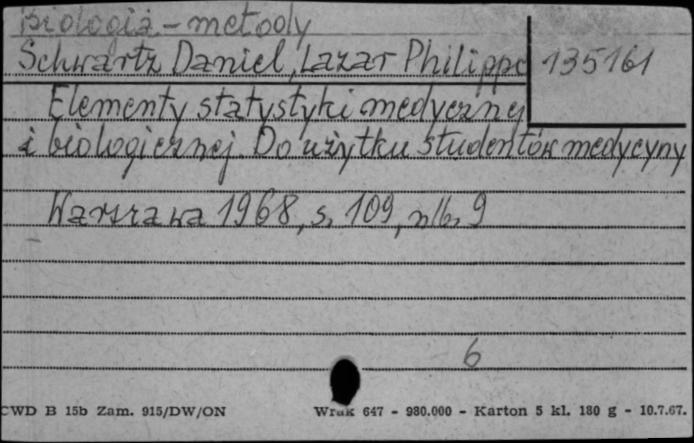 Biologia - metody
Schwartz Daniel, Lazar Philippe
135161
Elementy statystyki medycznej
i biologicznej. Do użytku studentów medycyny
Warszawa 1968, s. 109, nlb. 9
6
CWD B 15b Zam. 915/DW/ON
Wrak 647 - 980.000 - Karton 5 kl. 180 g - 10.7.67.